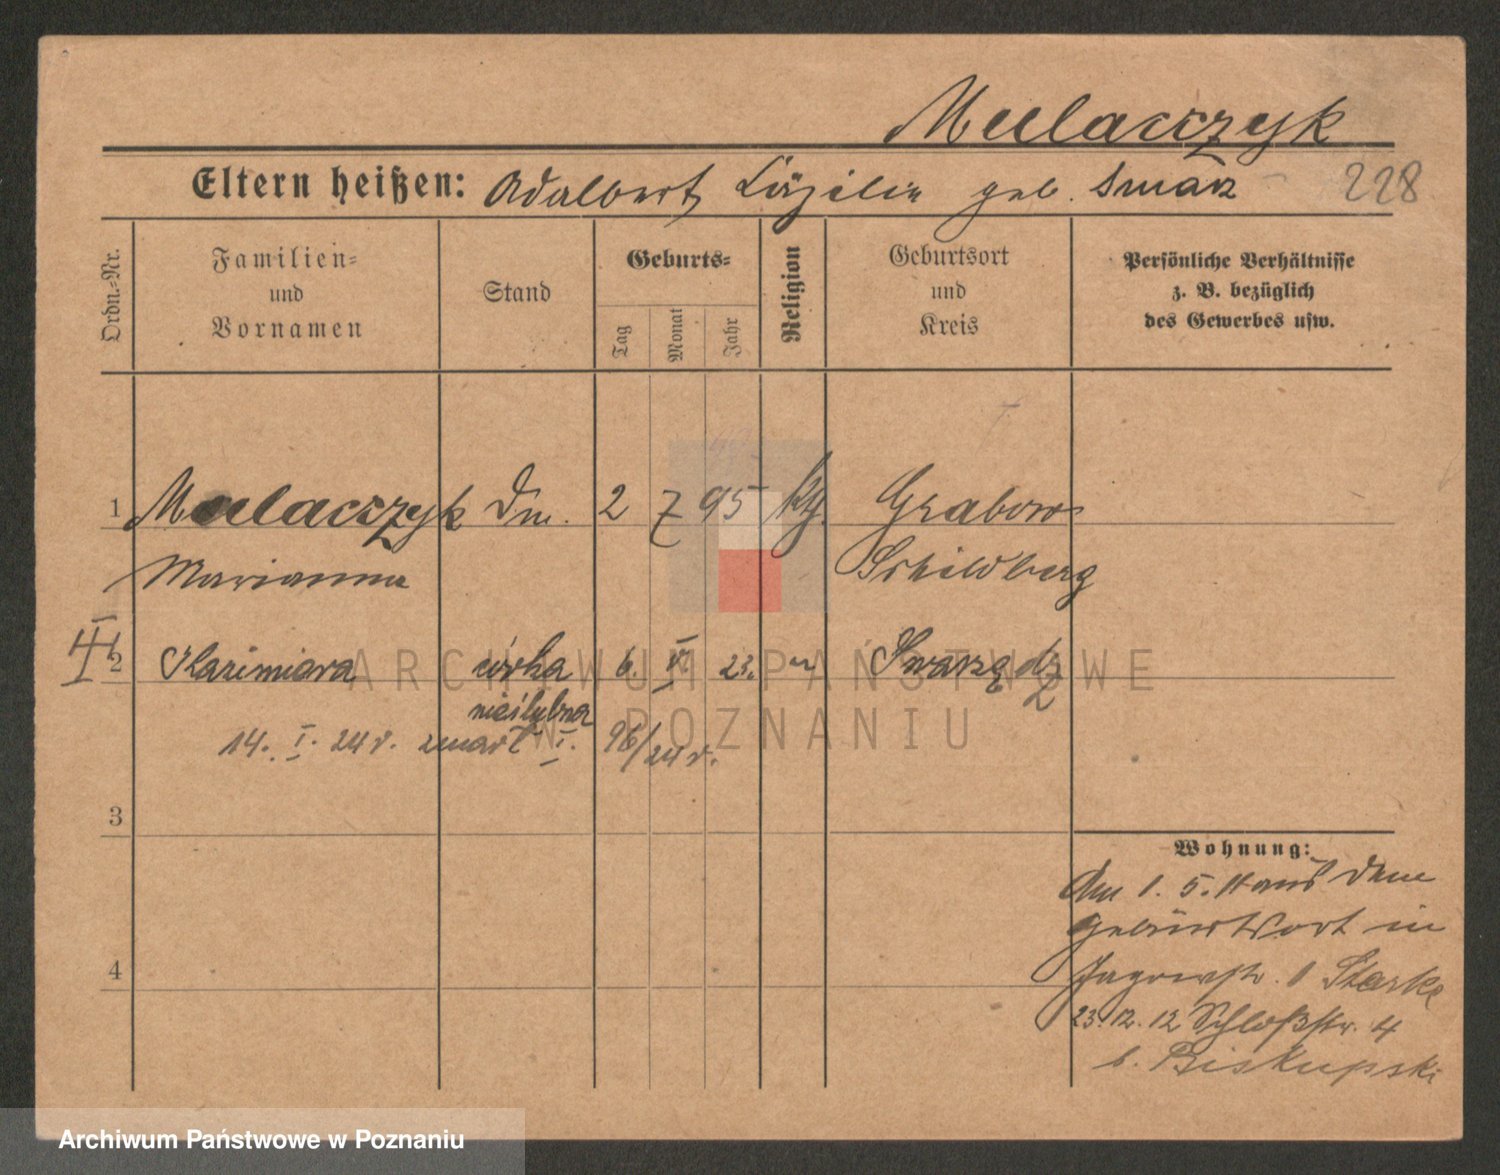 Mulaczyk
Eltern heißen: Adalbert Cäzilie geb. Smarz
228
Ordn.-Nr.
Familien- und Vornamen
Stand
Geburts-
Tag
Monat
Jahr
Religion
Geburtsort und Kreis
Persönliche Verhältnisse
z. B. bezüglich
des Gewerbes usw.
1 Mulaczyk Dm. 2 7 95 kth. Grabow
Marianna Schildberg
III
2 Kazimiera córka 6. V. 23. Swarzędz
nieślubna
14. I. 24 r. zmarł I. 96/24 r.
3
Wohnung:
Am 1. 5. 11 aus dem
Geburtsort in
4
Jagowstr. 1 Starke
23. 12. 12 Schloßstr. 4
b. Biskupski
ARCHIWUM PAŃSTWOWE
W POZNANIU
Archiwum Państwowe w Poznaniu